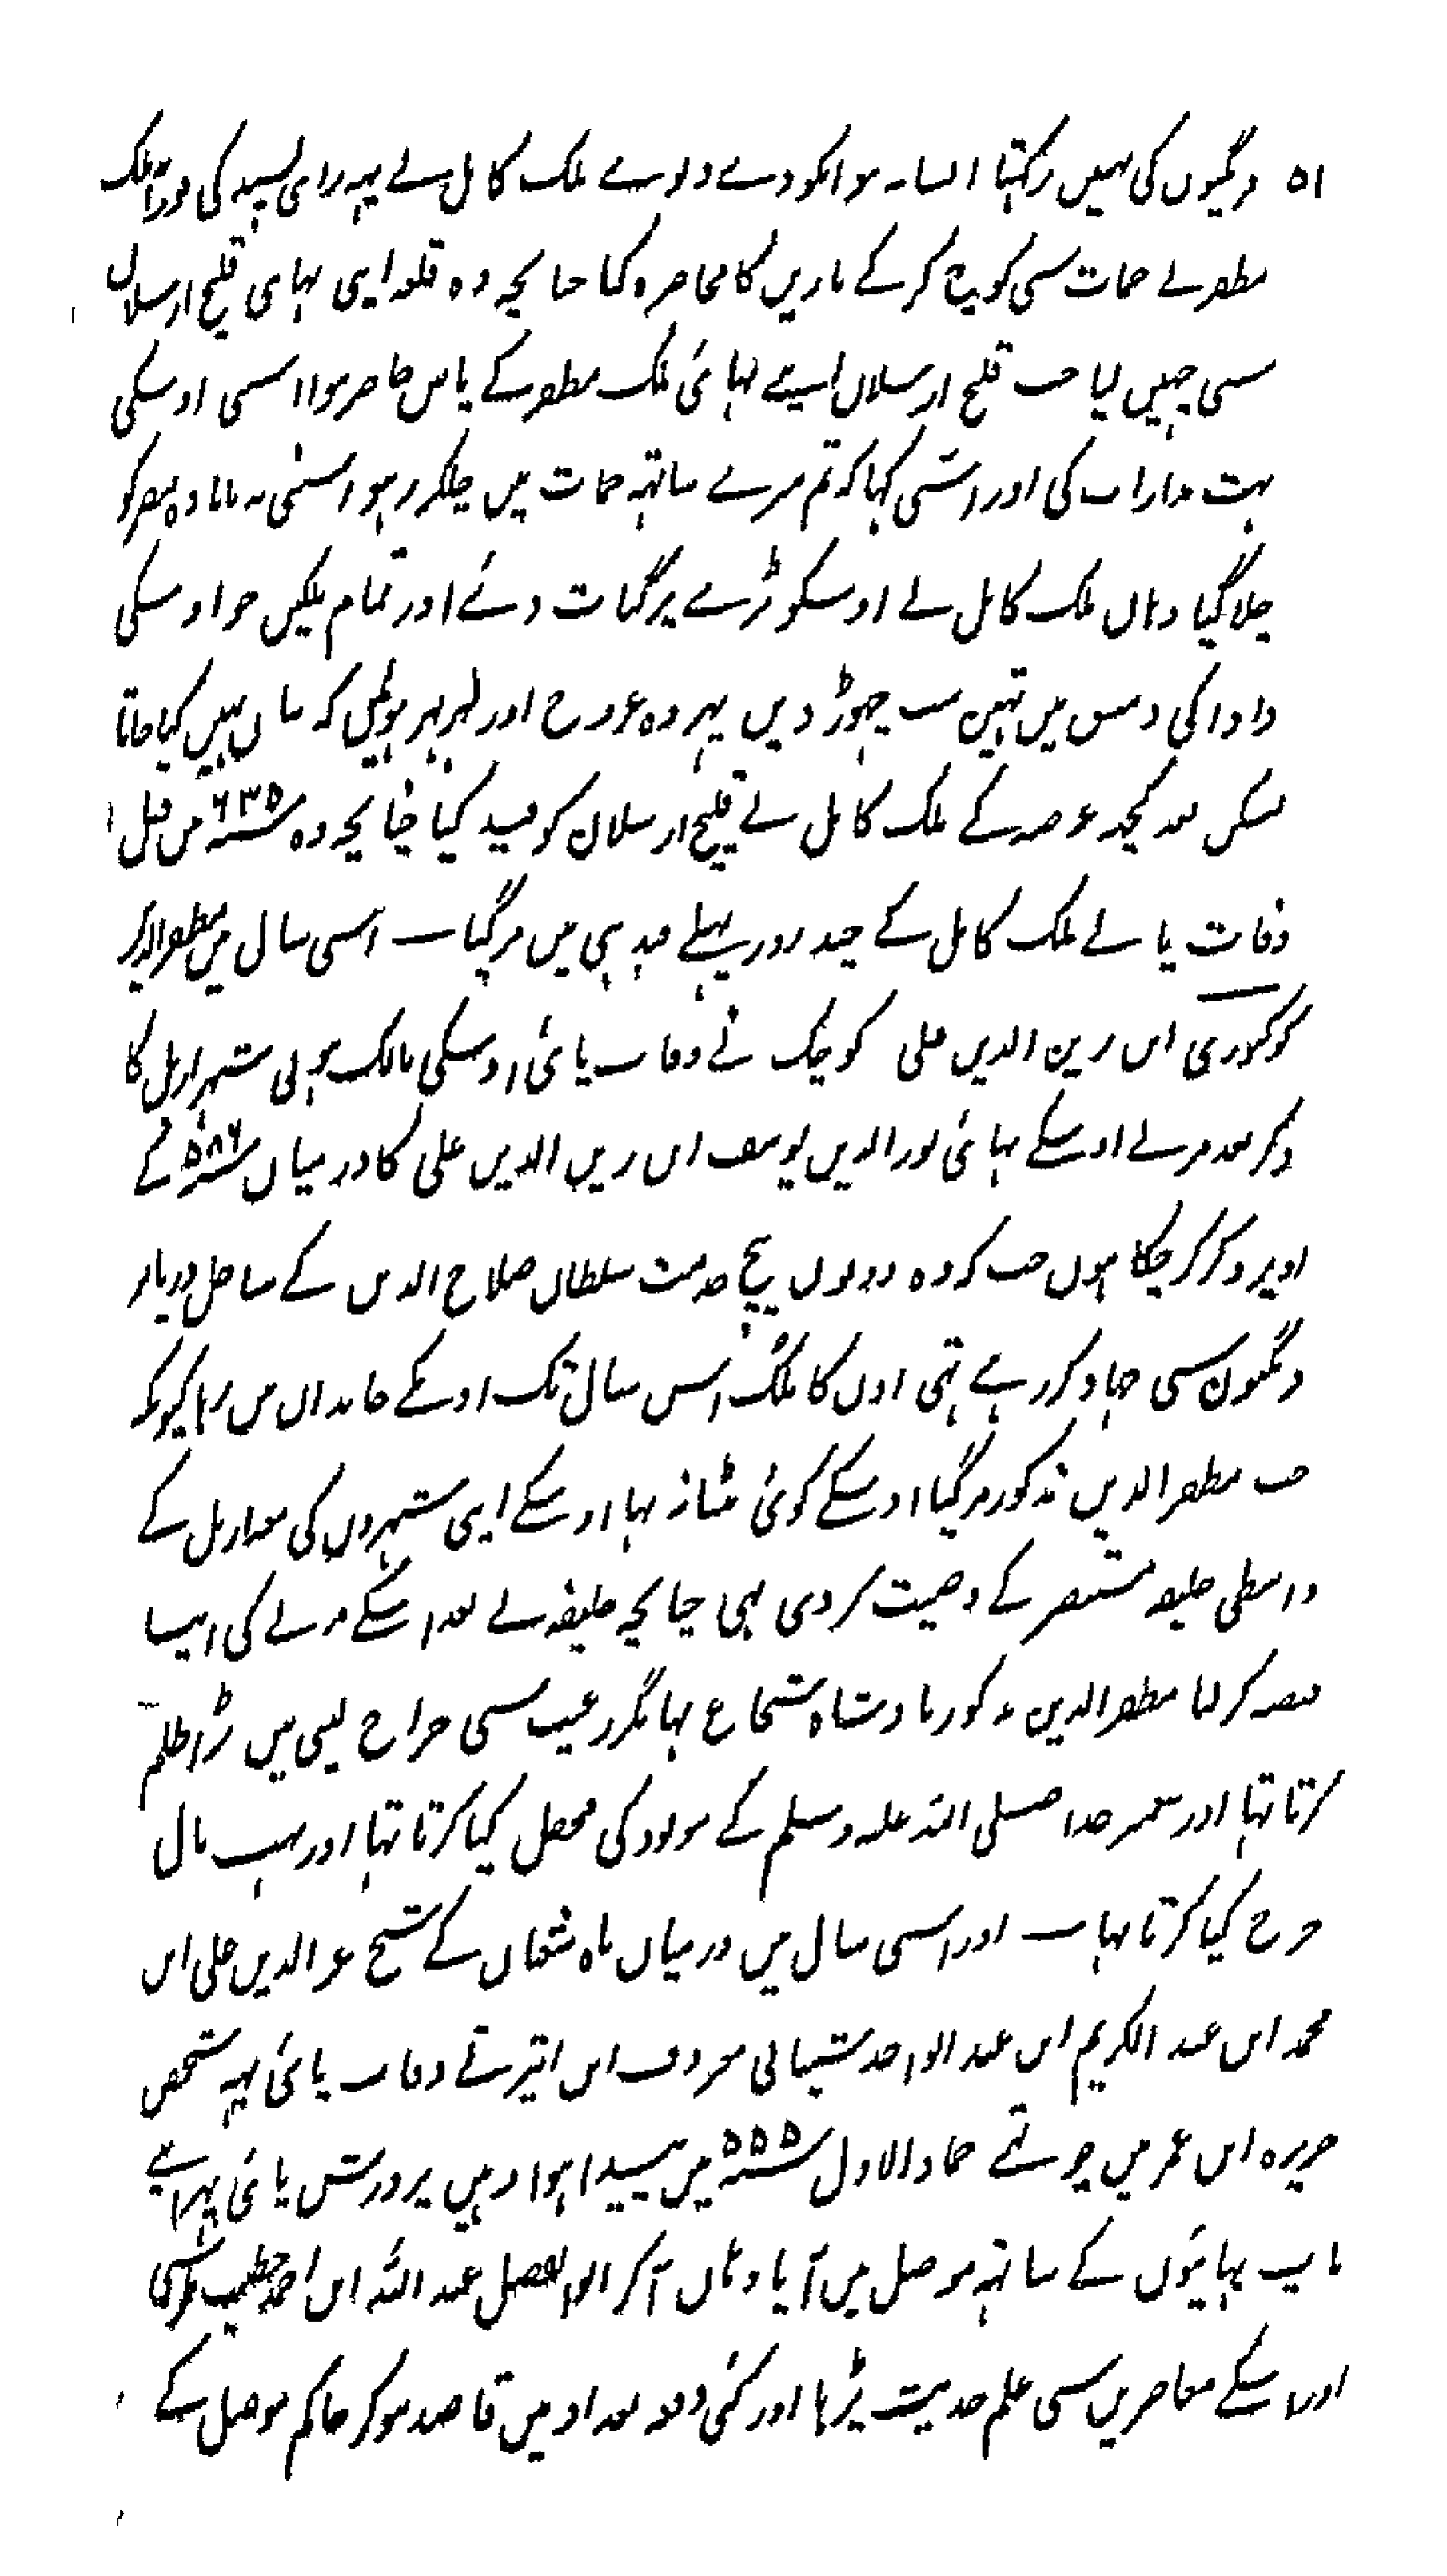 ۵۱ فرنگیون کی نہیں رکہتا ایسا نہ ہو انکو دے دلوے ملک کامل نے یہہ رای پسند کی فوراً ملک
مظفر نے حمات سی کوچ کر کے بارین کا محاصرہ کیا چنانچہ وہ قلعہ اپنی بہای قلیج ارسلان
سی چہین لیا جب قلیج ارسلان اپنے بہائی ملک مظفر کے پاس حاضر ہوا اسنی اوسکی
بہت مدارات کی اور اسّی کہا کہ تم میرے ساتہہ حمات میں چلکر رہو اسنی نہ مانا وہ مصر کو
چلا گیا وہاں ملک کامل نے اوسکو بڑے پرگنات دئے اور تمام ملکیں جو اوسکی
دادا کی دمشق میں تہین سب چہوڑ دیں پہر وہ عروج اور لہر بہر ہوئی کہ بیاں نہیں کیا جاتا
لیکن بعد کچہ عرصہ کے ملک کامل نے قلیج ارسلان کو قید کیا چنانچہ وہ ۶۳۵ میں قبل
وفات پانے ملک کامل کے چند روز پہلے قید ہی میں مر گیا اسی سال میں مظفر الدین
کوکبوری ابن زین الدین علی کوچک نے وفات پائی اوسکی مالک ہونی شہر اربل کا
ذکر بعد مرنے اوسکے بہائی نور الدین یوسف ابن زین الدین علی کا درمیان ۵۸۶ کے
اوپر ذکر کر چکا ہوں جب کہ وہ دونوں بیچ خدمت سلطان صلاح الدین کے ساحل دریا پر
فرنگیون سی جہاد کر رہے تہی اون کا ملک اس سال تک اوسکے خاندان میں رہا کیونکہ
جب مظفر الدین مذکور مر گیا اوسکے کوئی بیٹا نہ تہا اوسکے اپنی شہروں کی معہ اربل کے
واسطی خلیفہ مستنصر کے وصیت کر دی تہی چنانچہ خلیفہ نے بعد اسکے مرنے کی اپنا
قبضہ کر لیا مظفر الدین مذکور بادشاہ شجاع تہا مگر رعیت سی خراج لینی میں بڑا ظلم
کرتا تہا اور پیغمبر خدا صلی اللہ علیہ وسلم کے مولود کی محفل کیا کرتا تہا اور بہت مال
خرچ کیا کرتا تہا اور اسی سال میں درمیاں ماہ شعبان کے شیخ عز الدین علی ابن
محمد ابن عبد الکریم ابن عبد الواحد شیبانی معروف ابن اثیر نے وفات پائی یہہ شخص
جزیرہ ابن عمر میں چوتہے جماد الاول ۵۵۵ میں پیدا ہوا وہیں پرورش پائی پہر اپنے
باپ بہائیوں کے ساتہہ موصل میں آیا وہاں آکر ابو الفضل عبد اللہ ابن احمد خطیب طوسی
اور اسکے معاصرین سی علم حدیث پڑہا اور کئی دفعہ بغداد میں قاصد ہو کر حاکم موصل کے